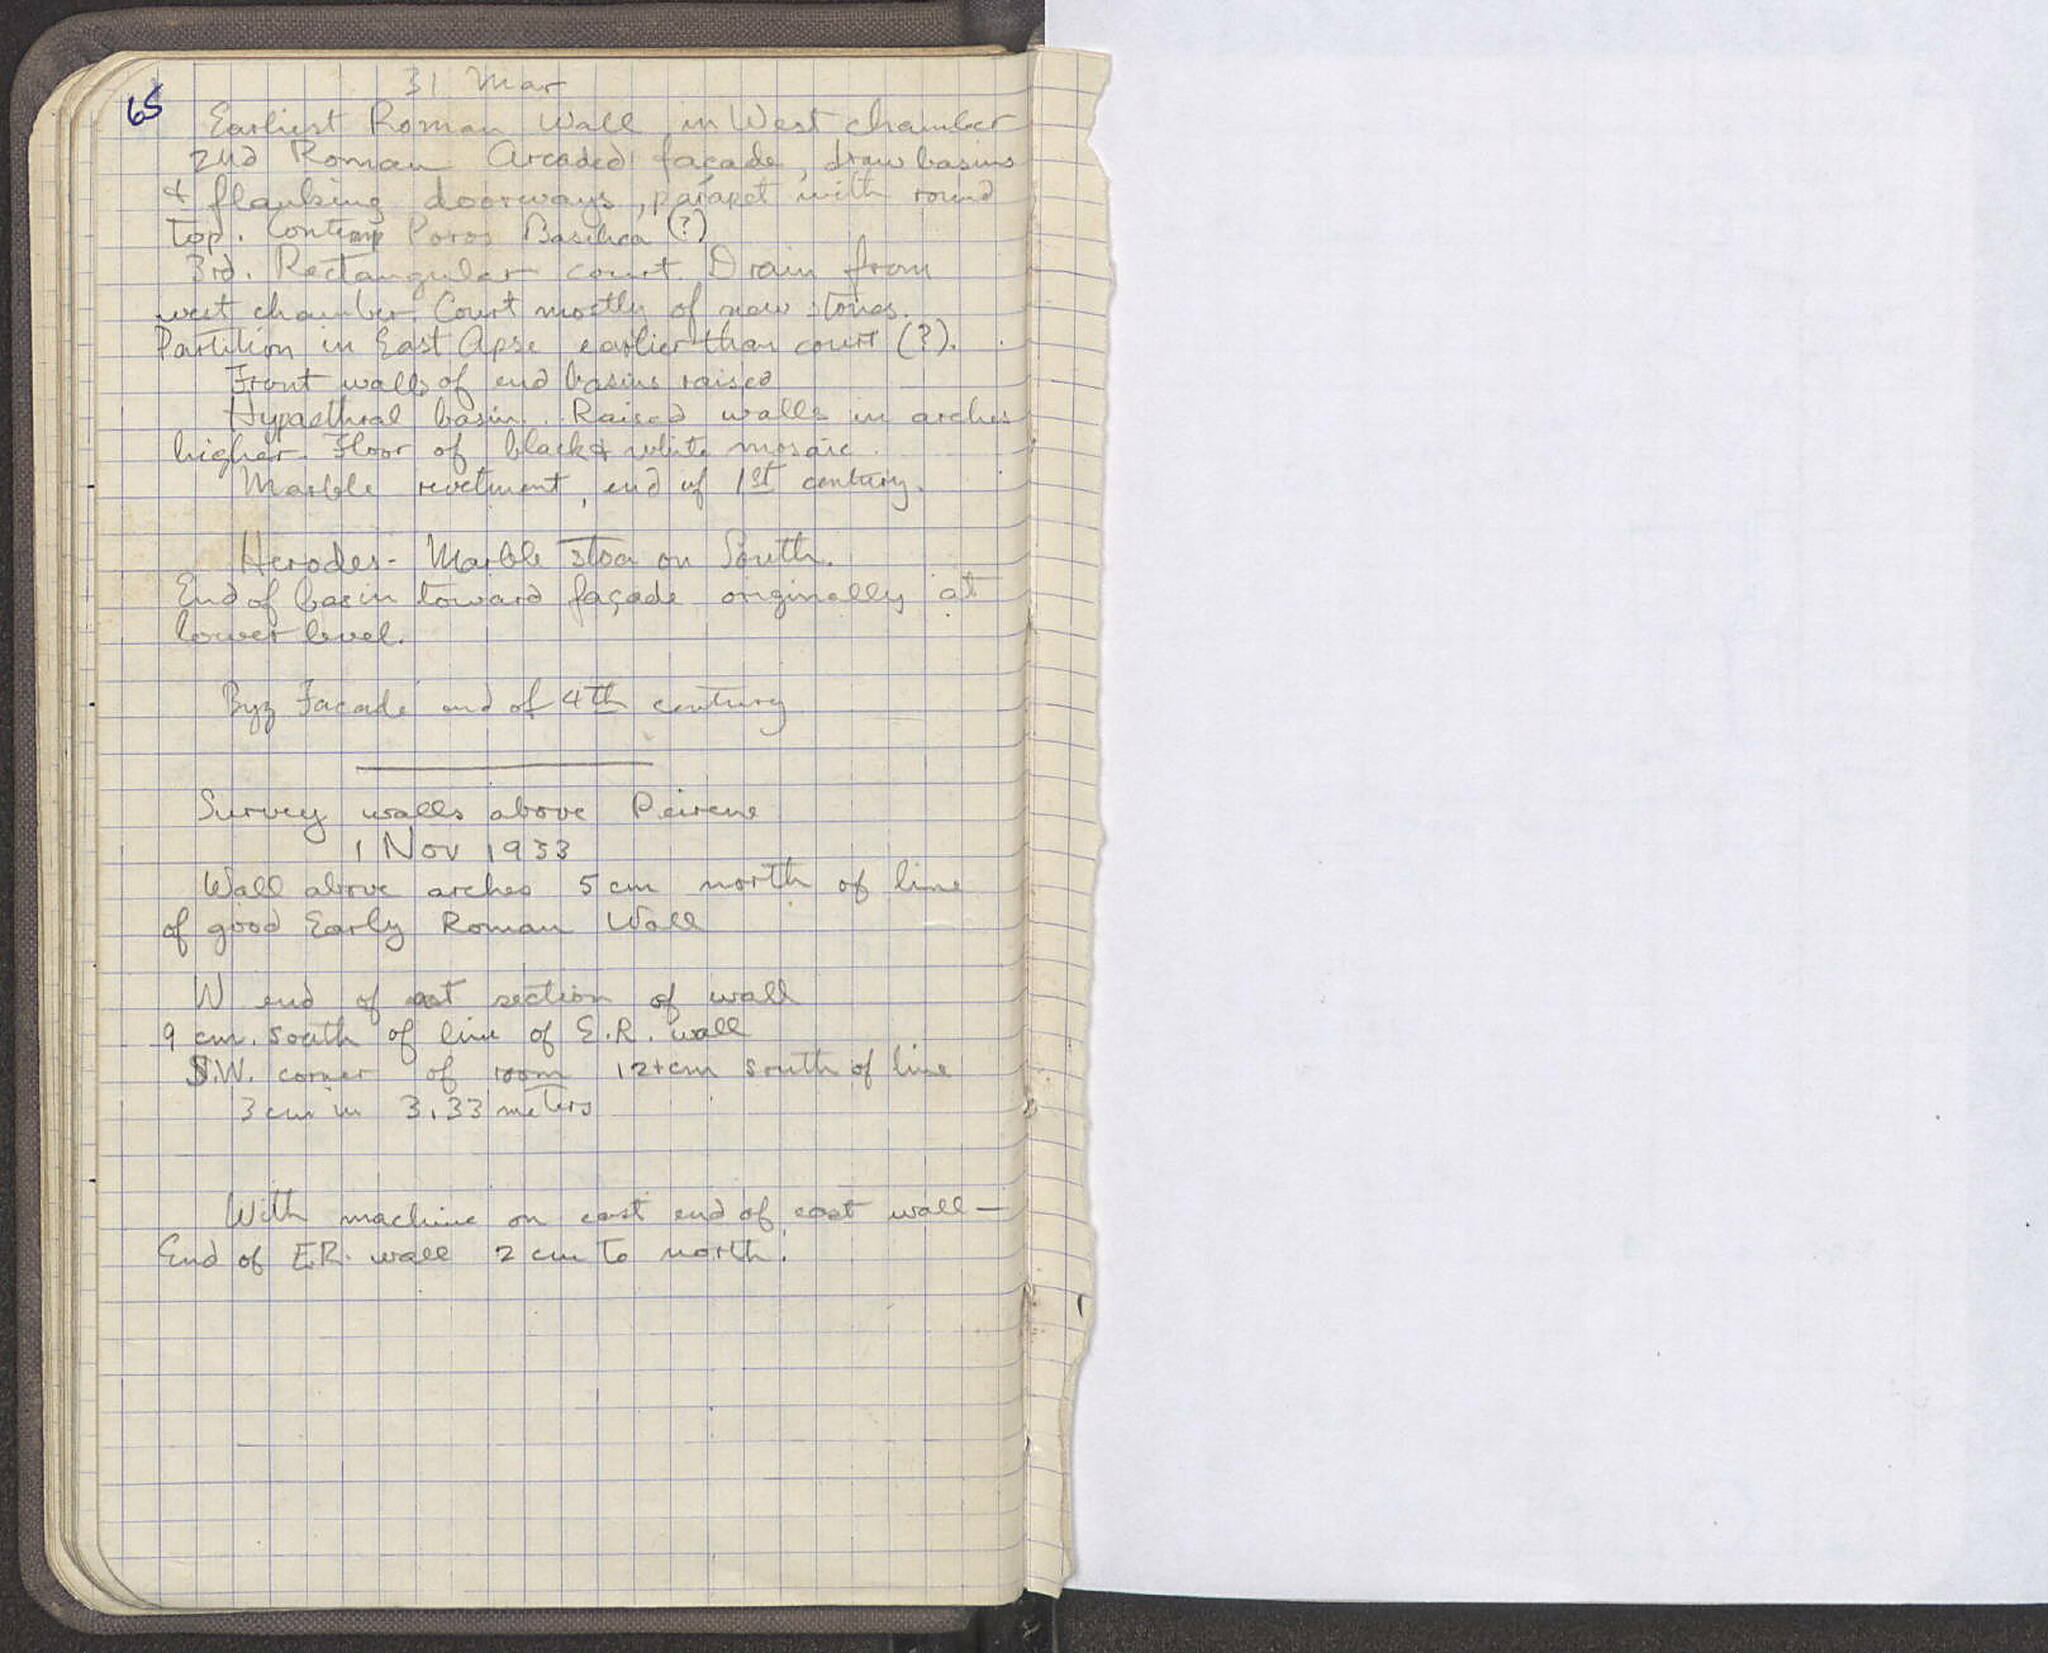 65
31 Mar
Earliest Roman Wall in West chamber
2nd Roman Arcaded façade, draw basins
+ flanking doorways, parapet with round
top. Contemp Poros Basilica (?)
3rd. Rectangular court. Drain from
west chamber. Court mostly of new stones.
Partition in East Apse earlier than court (?).
Front walls of end basins raised
Hypaethral basin. Raised walls in arches
higher. Floor of black & white mosaic.
Marble revetment, end of 1st century.
Herodes - Marble stoa on South.
End of basin toward façade originally at
lower level.
Byz Facade end of 4th century
Survey walls above Peirene
1 Nov 1933
Wall above arches 5 cm north of line
of good Early Roman Wall
W end of east section of wall
9 cm. south of line of E.R. wall
S.W. corner of room 12+cm south of line
3 cm in 3.33 meters
With machine on east end of east wall —
End of E.R. wall 2 cm to north.